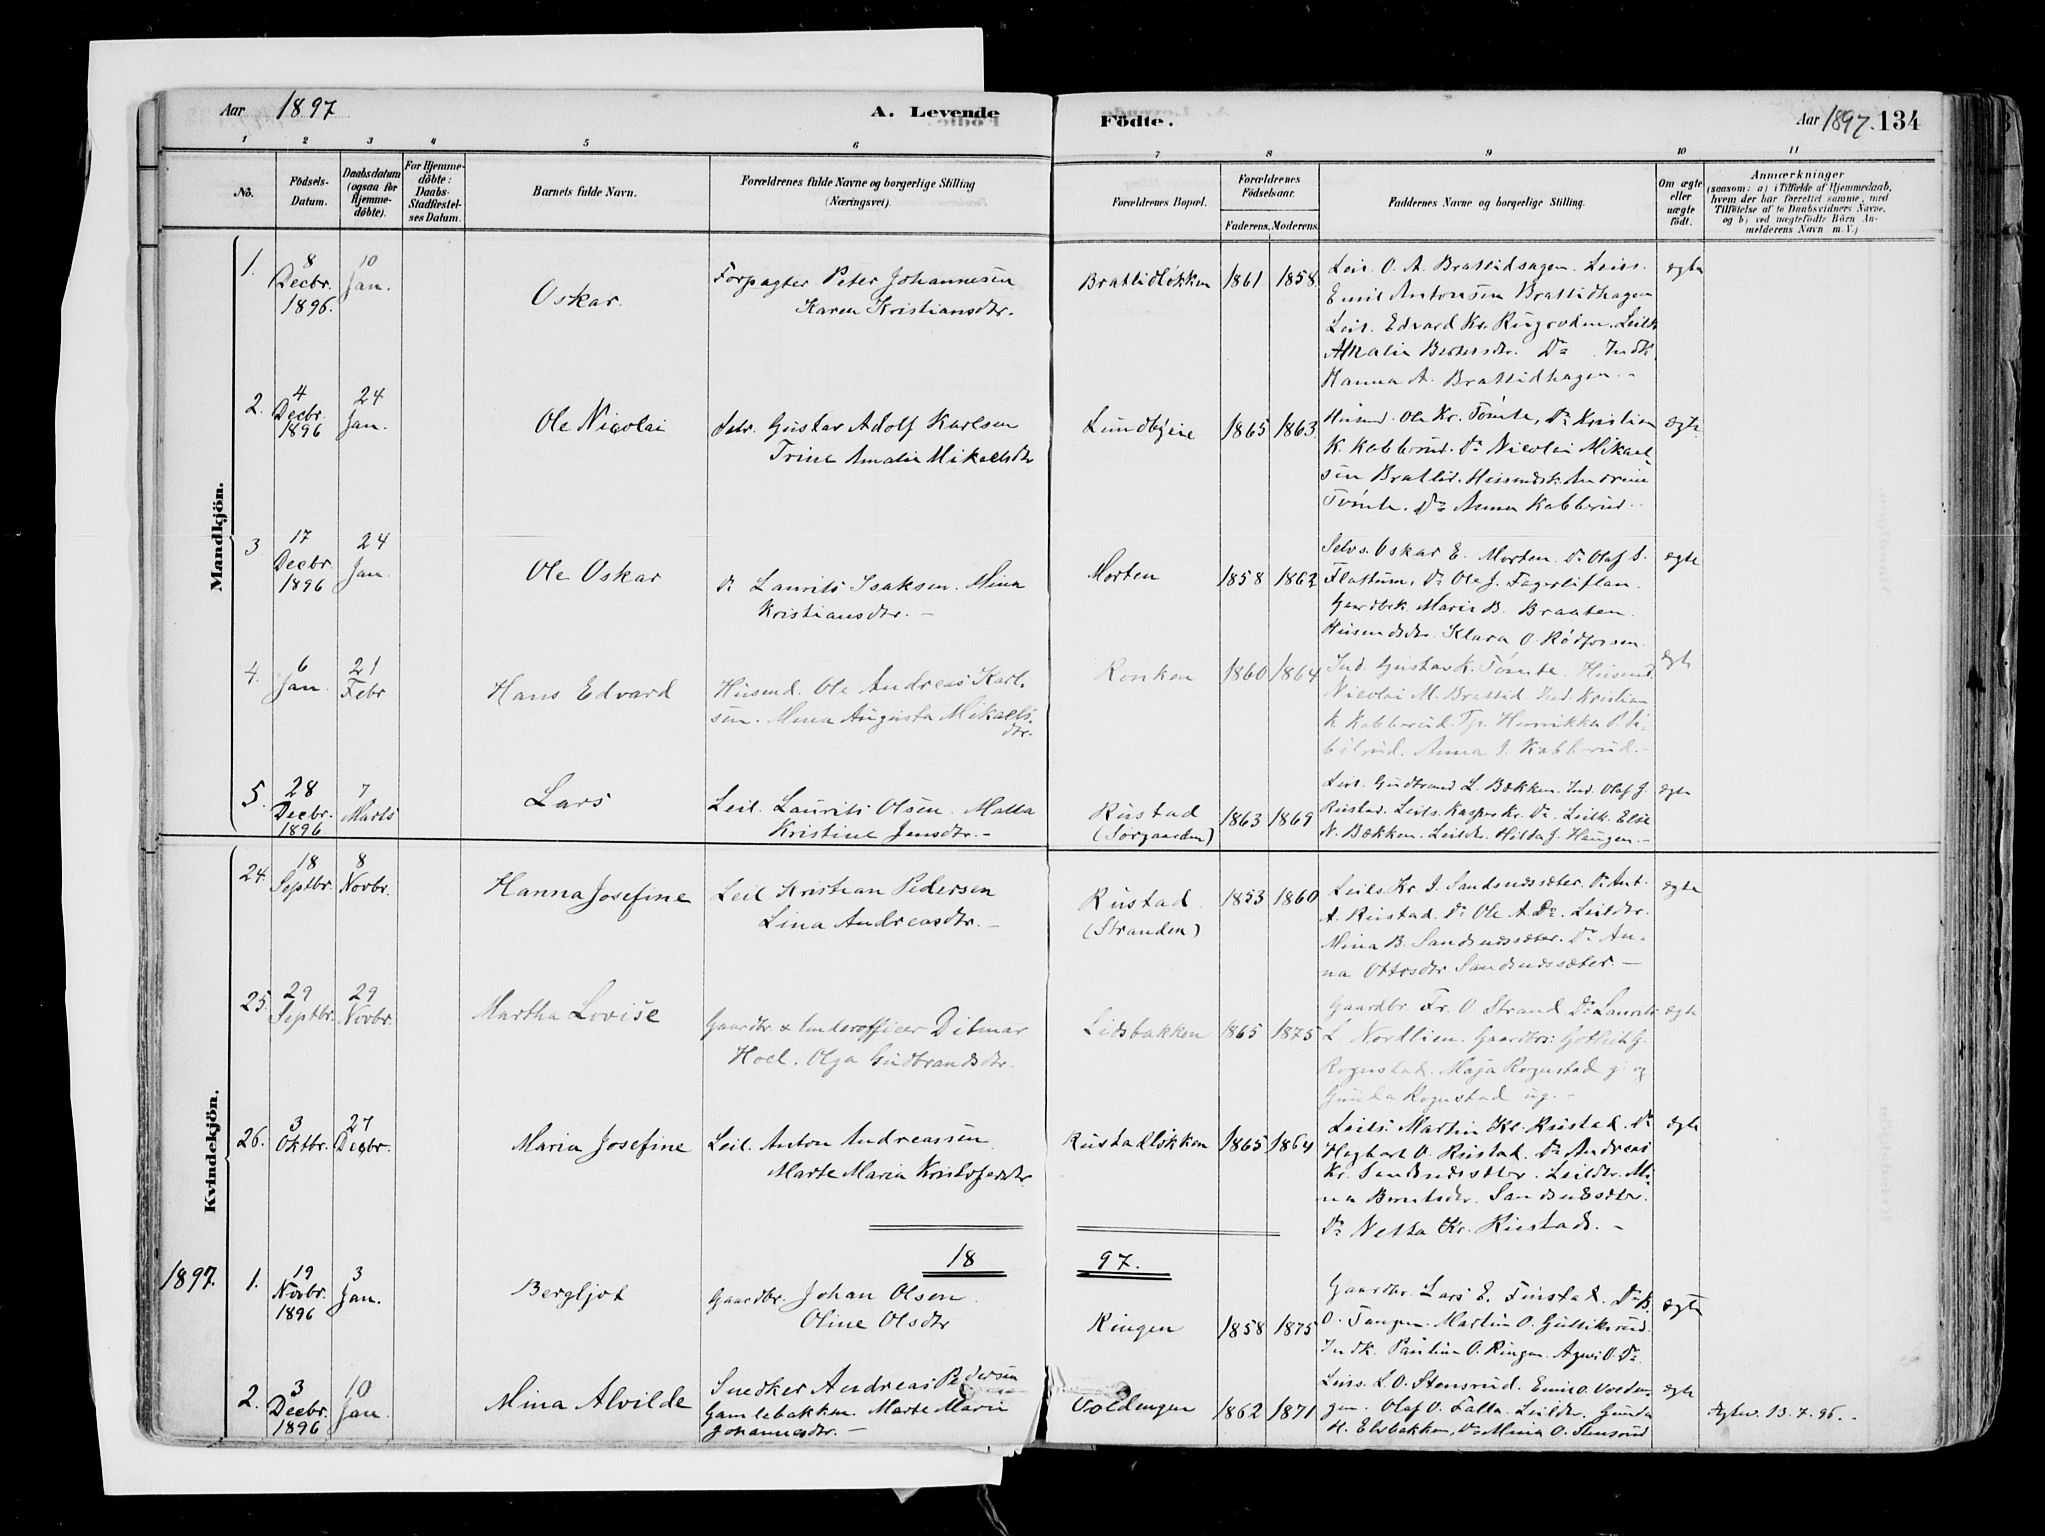 Aar 1897
A. Levende
Fødte.
Aar 1897. 134
1 2 3 4 5 6 7 8 9 10 11
No.
Fødsels-
Datum.
Daabsdatum
(ogsaa for
Hjemme-
døbte).
For Hjemme-
døbte:
Daabs-
Stadfæstel-
ses Datum.
Barnets fulde Navn.
Forældrenes fulde Navne og borgerlige Stilling
(Næringsvei).
Forældrenes Bopæl.
Forældrenes
Fødselsaar.
Faderens. Moderens.
Faddernes Navne og borgerlige Stilling.
Om ægte
eller
uægte
født.
Anmærkninger
(saasom: a) i Tilfælde af Hjemmedaab,
hvem der har forrettet samme, med
Tilføielse af to Daabsvidners Navne,
og b) ved uægtefødte Børn An-
melderens Navn m. V.)
Mandkjön.
1.
8
Decbr.
1896.
10
Jan.
Oskar.
Forpagter Peter Johannesen
Karen Kristiansdtr.
Bratlidløkken
1861 1858
Leil. O. A. Bratlidhagen. Leils.
Emil Antonsen Bratlidhagen
Leil. Edvard Kr. Rugroden. Leilk.
Amalie Bertensdtr. Do Indk.
Hanna A. Bratlidhagen. -
ægte
2.
4
Decbr.
1896
24
Jan.
Ole Nicolai
Selv. Gustav Adolf Karlsen
Trine Amalie Mikaelsdtr
Lundbyeie
1865 1863
Husmd. Ole Kr. Tømte, Do Kristian
K. Kabberud. Do Nicolai Mikael-
sen Bratlid. Husmdsk. Andrine
Tømte. Do Anna Kabberud.
ægte.
3
17
Decbr.
1896
24
Jan.
Ole Oskar
Do Laurits Isaksen. Mina
Kristiansdtr. -
Morten
1858 1862
Selvs. Oskar E. Morten. Do Olaf S.
Flattum. Do Ole J. Fagerliflan.
Gaardbrk. Marie B. Braaten.
Husmdsdtr. Klara O. Rødfossen.
ægte
4.
6
Jan.
21
Febr
Hans Edvard
Husmd. Ole Andreas Karl-
sen. Mina Augusta Mikaels-
dtr.
Ronken
1860 1864
Ind. Gustav K. Tømte. Husmd.
Nicolai M. Bratlid. Ind. Kristian
K. Kabberud. Tp. Henrikka P.
Anna J. Kabberud. -
ægte
5.
28
Decbr.
1896
7
Marts
Lars
Leil. Laurits Olsen. Malla
Kristine Jensdtr. -
Rustad
(Sørgaarden)
1863 1869
Leil. Gudbrand L. Bækken. Ind. Olaf J.
Rustad. Leils. Kasper Kr. Do. Leilk. Elise
N. Bækken. Leildtr. Hilda J. Haugen. -
ægte
Kvindekjön.
24.
18
Septbr.
8
Novbr.
Hanna Josefine
Leil. Kristian Pedersen
Lina Andreasdtr. -
Rustad
(Stranden)
1853 1860
Leils. Kr. J. Sandsnessæter. Do Ant.
A. Rustad. Do Ole A. Do. Leildtr.
Mina B. Sandsnessæter. Do An-
na Ottosdtr Sandsnessæter. -
ægte
25.
29
Septbr.
29
Novbr.
Martha Lovise
Gaardbr & Underofficer Ditmar
Hoel. Olga Gudbrandsdtr.
Lidsbakken
1865 1875
Gaardbr. Fr. O. Strand. Do Laurits
L. Nordlien. Gaardbrs: Gothilf G.
Rognstad. Maja Rognstad g. og
Gunda Rognstad ug. -
ægte
26.
3
Oktbr.
27
Decbr.
Maria Josefine
Leil. Anton Andreassen.
Marte Maria Kristofersdtr
Rustadløkken
1865 1864
Leils. Martin Kr. Rustad. Do
Hagbart O. Rustad. Do Andreas
Kr. Sandsnessæter. Leildtr. Mi-
na Berntsdtr. Sandsnessæter.
Do Netta Kr. Rustad. -
ægte
18 97.
1897.
1.
19
Novbr.
1896
3
Jan.
Bergljot
Gaardbr. Johan Olsen
Oline Olsdtr
Ringen
1858 1875
Gaardbr. Lars E. Finstad. Do K.
O. Tangen. Martin O. Gulliksrud.
Indk. Pauline O. Ringen. Agnes O. Do.
ægte
2.
3
Decbr.
1896
10
Jan.
Mina Alvilde
Snedker Andreas Pedersen
Gamlebakken. Marte Marie
Johannesdtr. -
Voldengen
1862 1871
Leils. L. O. Stensrud. Emil O. Volden-
gen. Olaf O. Falla. Leildtr. Gunda
H. Elsbakken, Do Mina O. Stensrud
ægte
Ægtev. 13.7.96. -